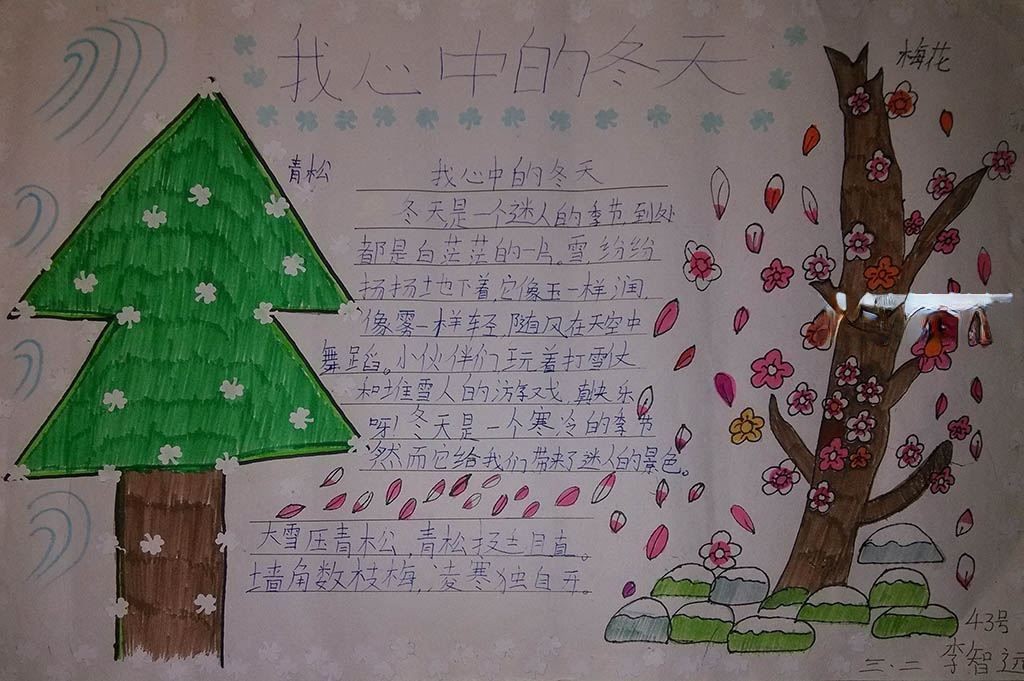 我心中的冬天
梅花
青松
我心中的冬天
冬天是一个迷人的季节,到处
都是白茫茫的一片。雪,纷纷
扬扬地下着,它像玉一样润,
像雾一样轻,随风在天空中
舞蹈。小伙伴们玩着打雪仗
和堆雪人的游戏,真快乐
呀!冬天是一个寒冷的季节
然而它给我们带来了迷人的景色。
大雪压青松,青松挺且直。
墙角数枝梅,凌寒独自开。
43号
三.二 李智远